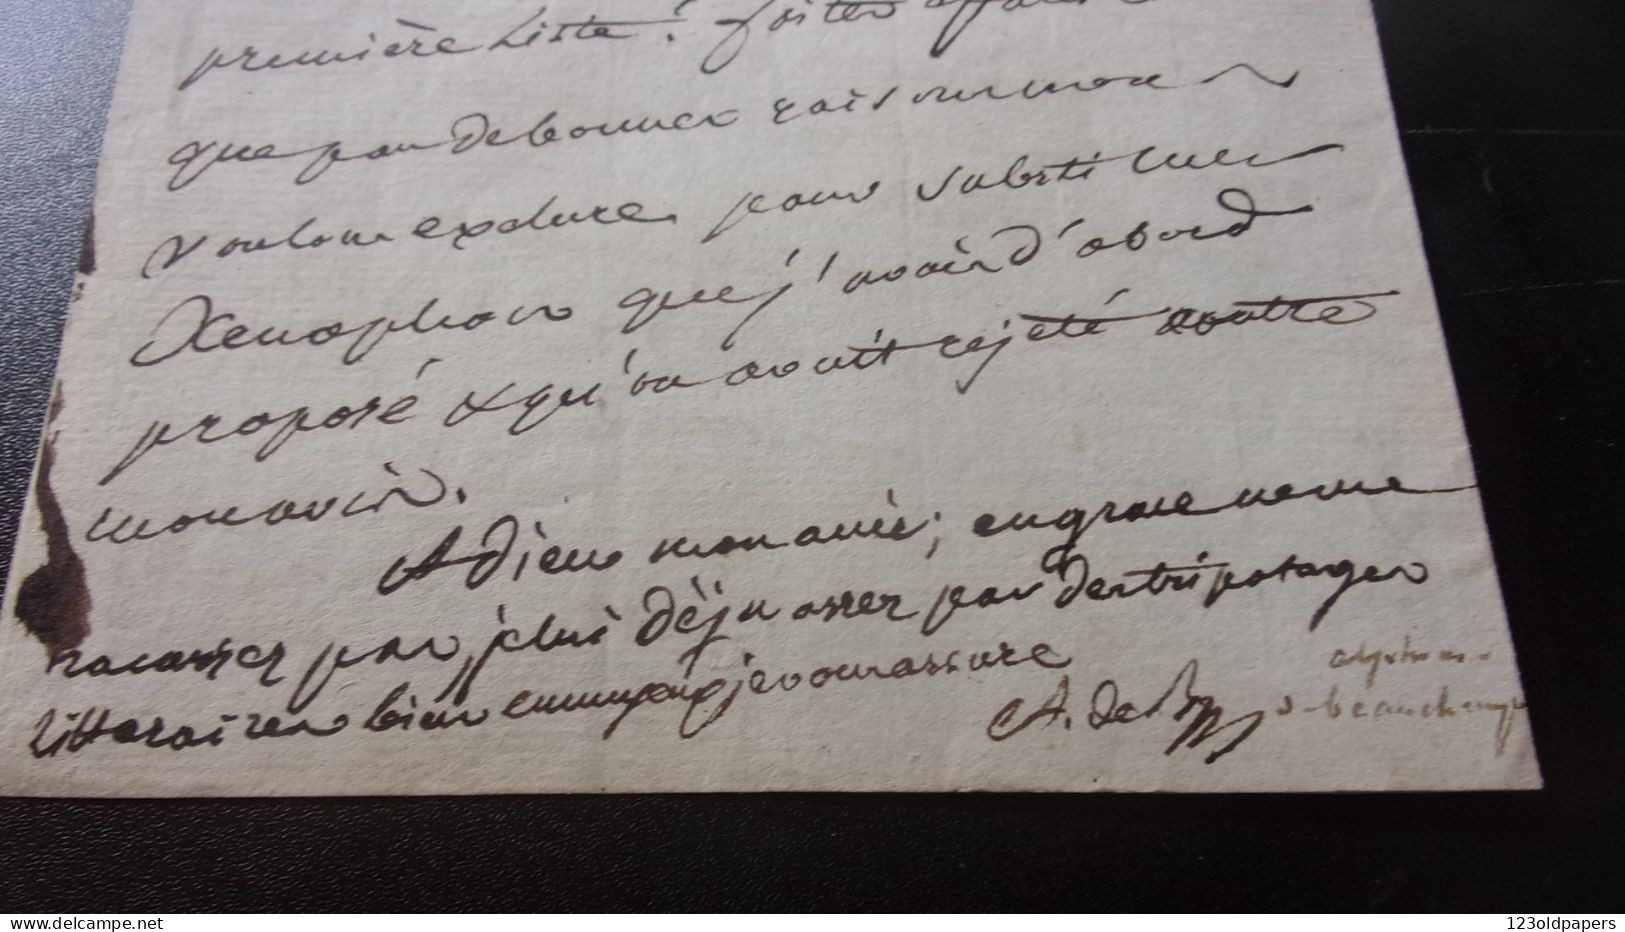 première Liste! Faites
que par de bonnes raisons mon
voulons exclure, pour substituer
Xenophon que j'avais d'abord
proposé & qu'on avait rejeté contre
mon avis.
Adieu mon ami; en grace ne me
tracassez pas, je suis déjà assez par des tripotages
littéraires bien ennuyeux je vous assure
A. de B
alphonse
de beauchamp
123oldpapers